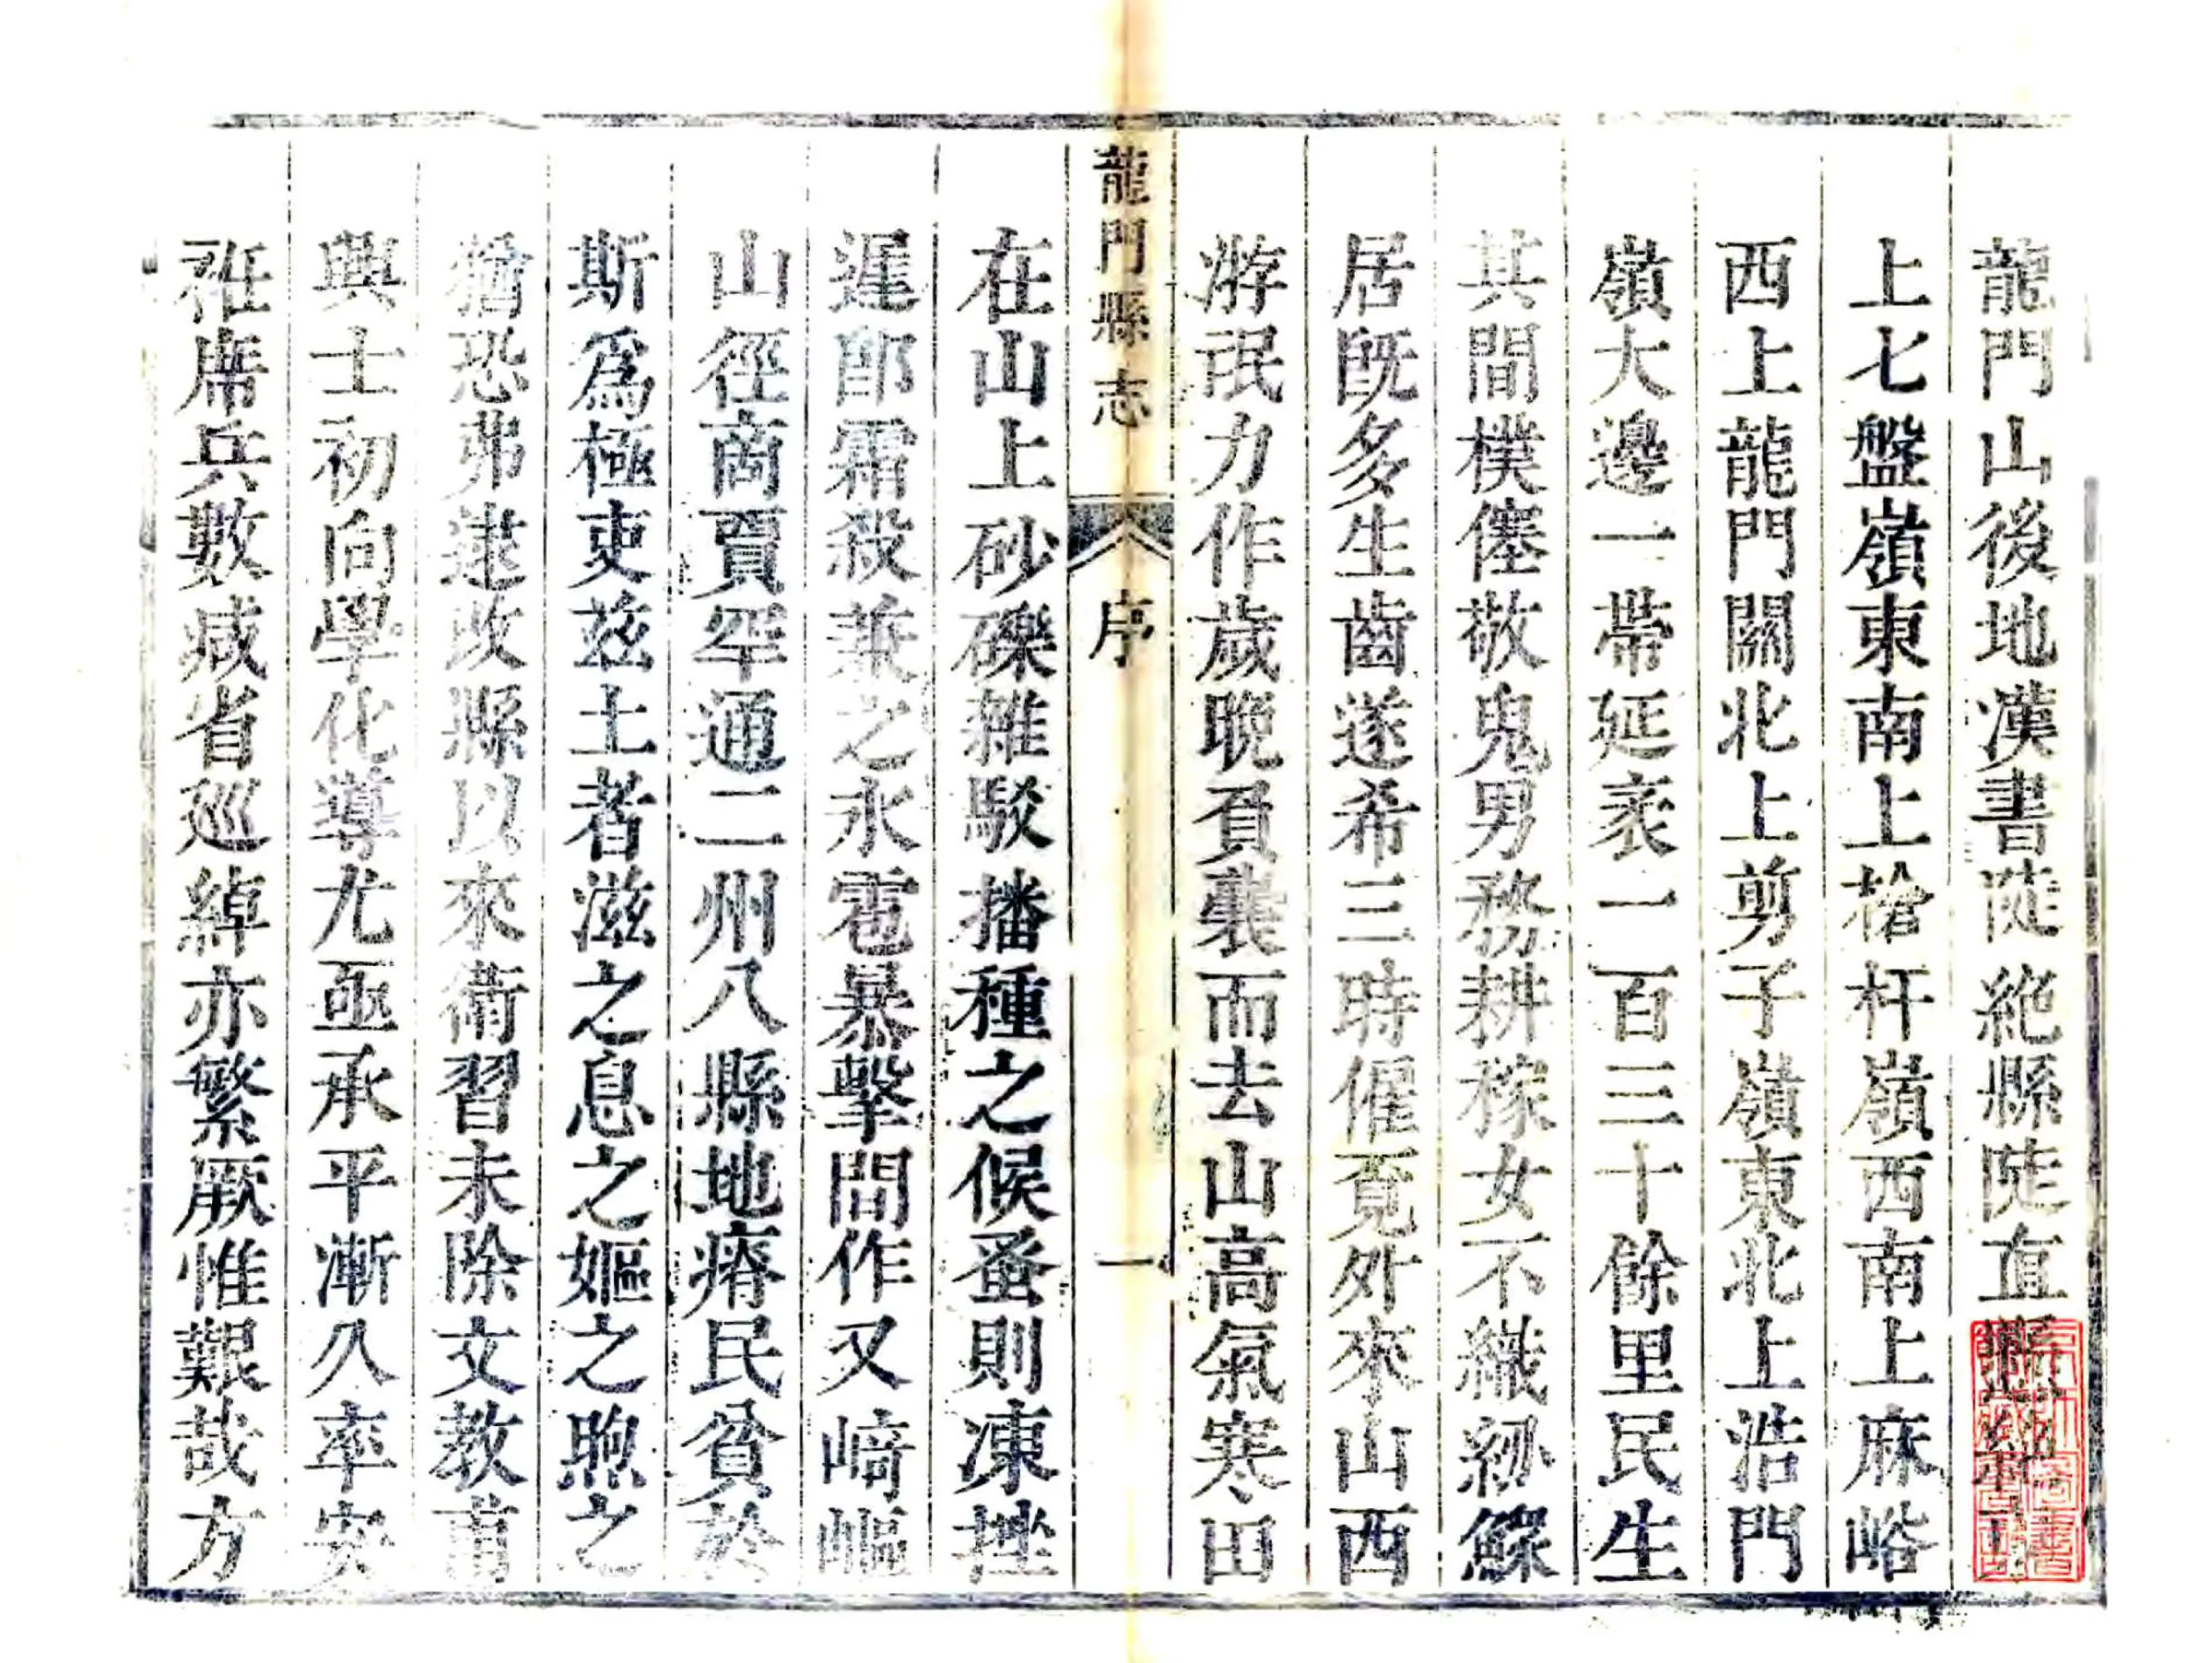 龍門山後地漢書陡絶縣陡直
上七盤嶺東南上槍杆嶺西南上麻峪
西上龍門關北上剪子嶺東北上浩門
嶺大邊一帶延袤一百三十餘里民生
其間樸僿敬鬼男務耕稼女不織紗鰥
居旣多生齒遂希三時傭覔外來山西
游氓力作歲晚負囊而去山高氣寒田
龍門縣志
序
一
在山上砂礫雜駁播種之候蚤則凍挫
遲卽霜殺兼之氷雹暴擊間作又崎嶇
山徑商賈罕通二州八縣地瘠民貧於
斯爲極吏茲土者滋之息之嫗之煦之
猶恐弗逮改縣以來衛習未除文教甫
興士初向學化導尤亟承平漸久率安
袵席兵數減省廵綽亦繁厥惟艱哉方